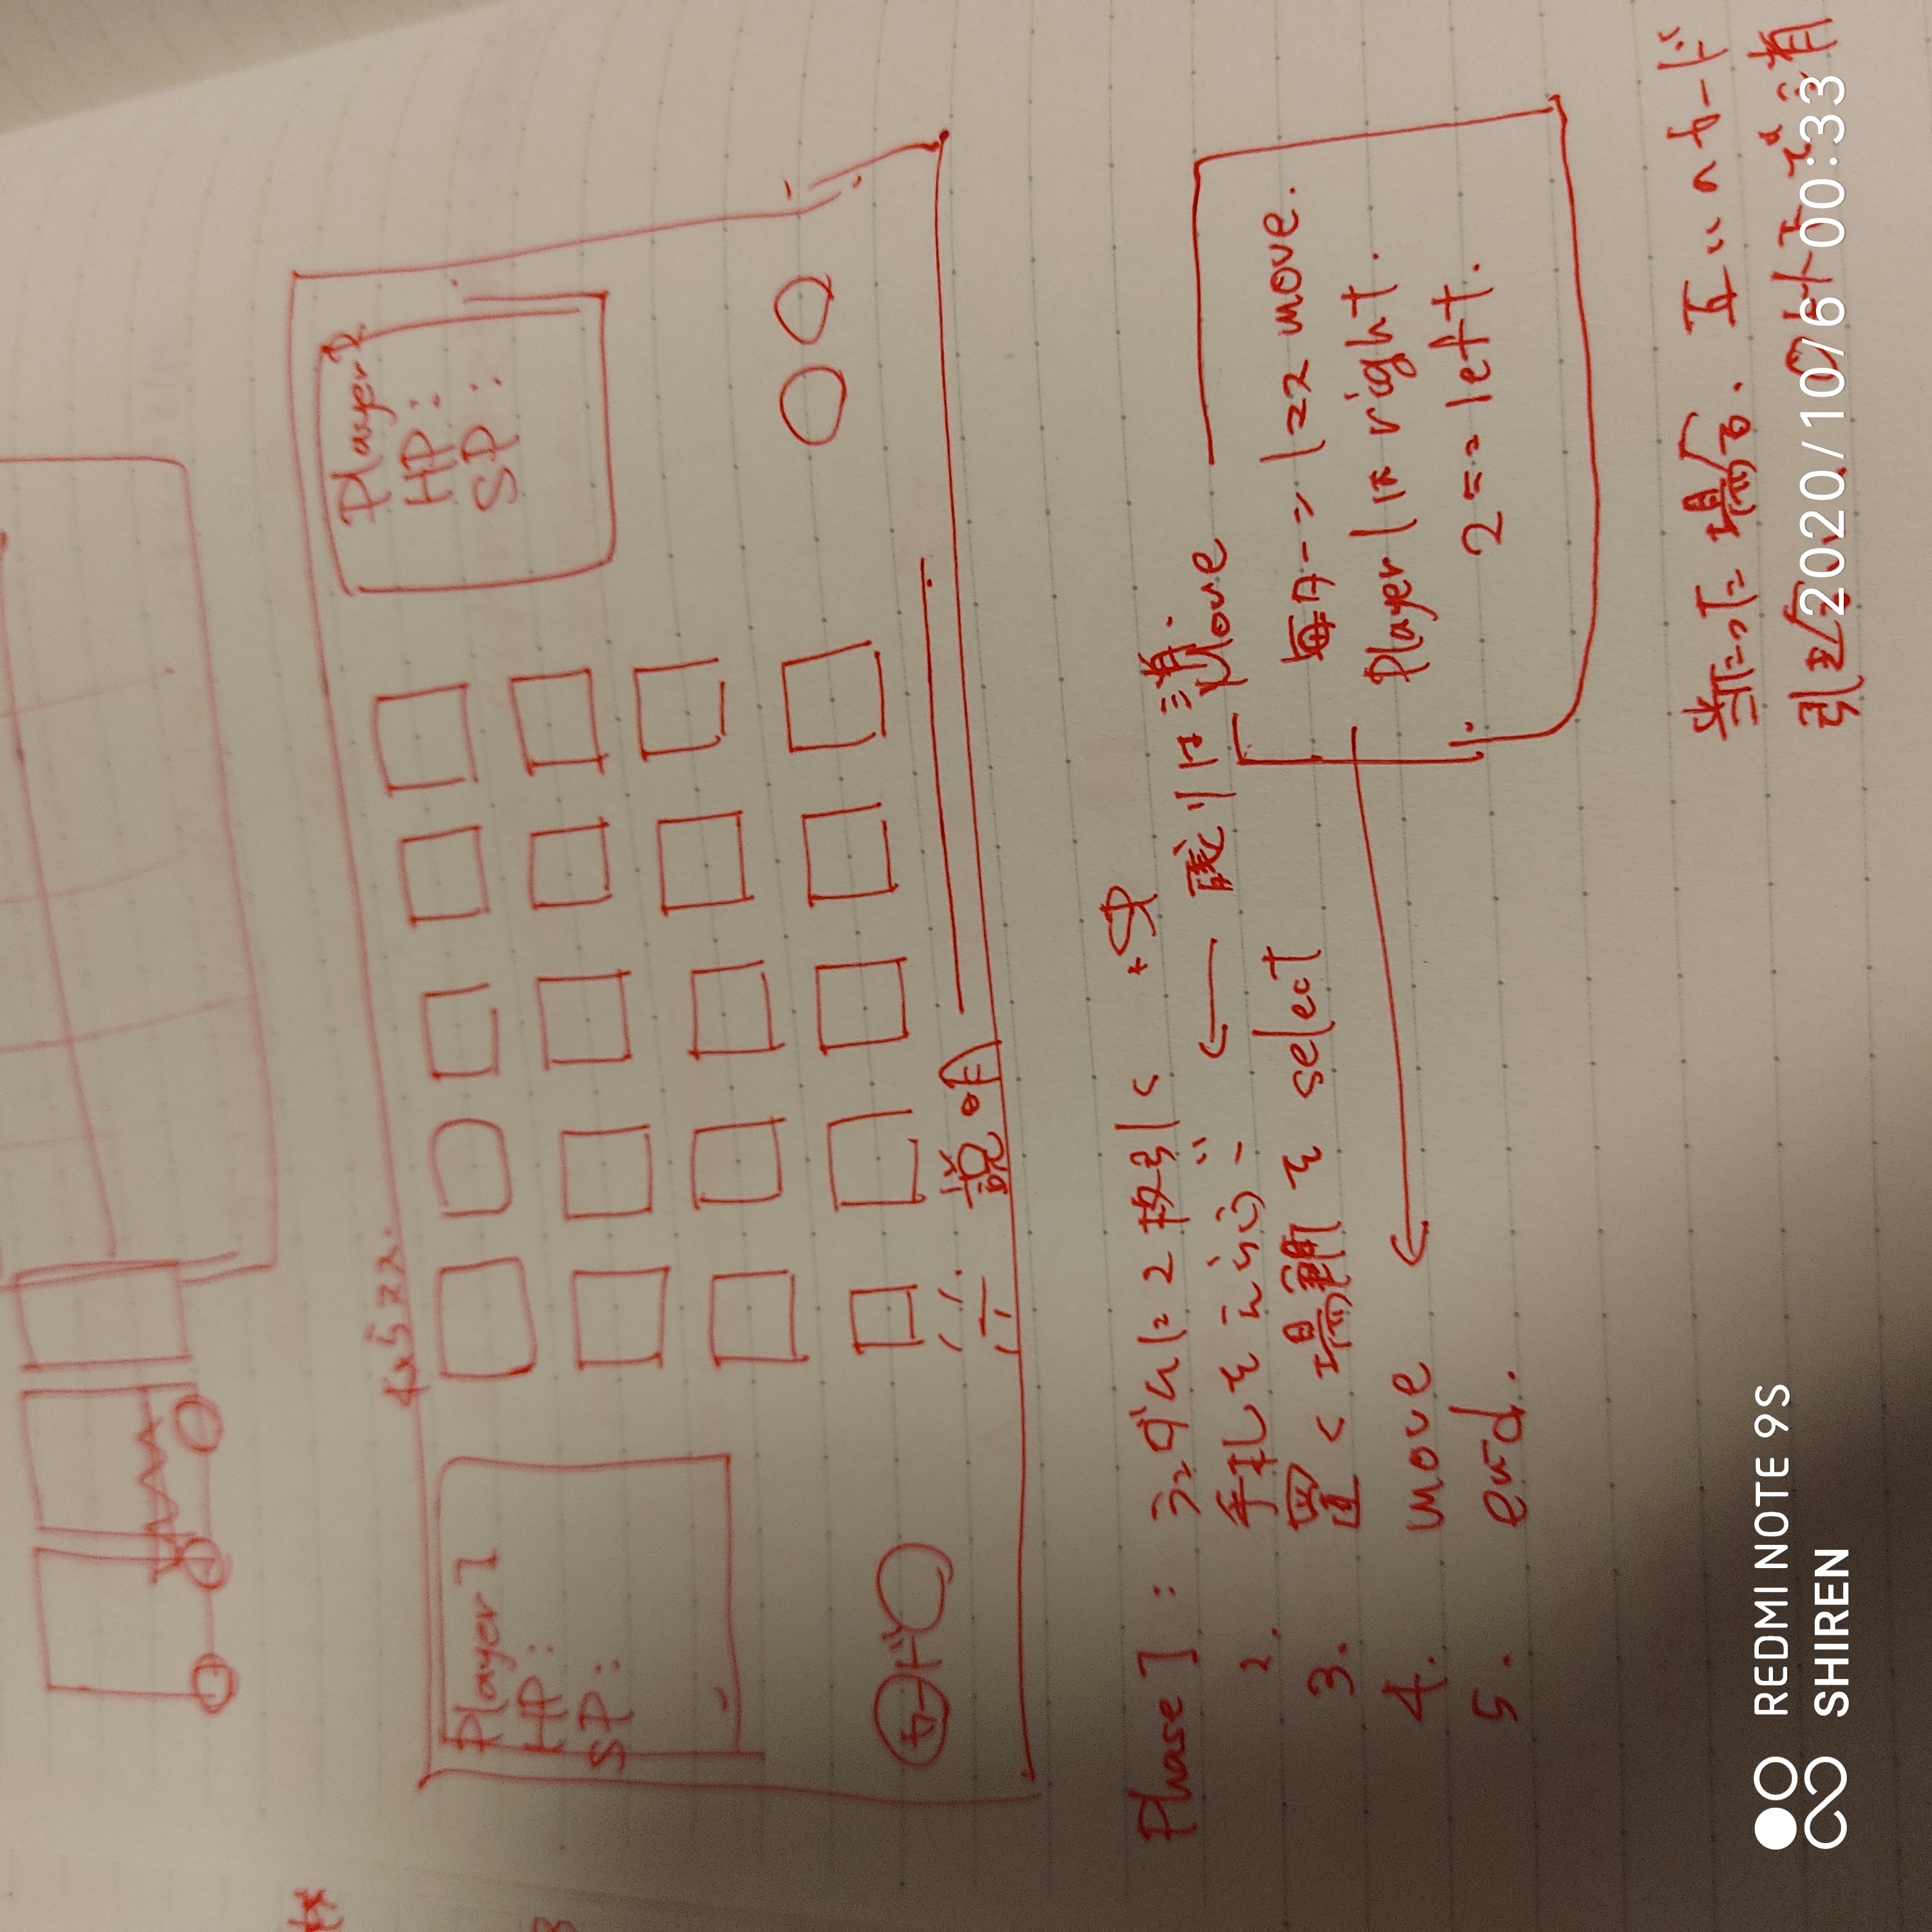 4x5マス.
Player 1
HP:
SP:
Player 2
HP:
SP:
カード
説明
Phase 1: ランダムに2枚引く +SP
2. 手札をえらぶ ← 残りは消.
3. 置く場所を select
4. move ←
5. end.
Move
毎ターン 1マス move.
Player 1は right.
2 left.
当たった場合、互いのカード
引き合い 0以下で消
REDMI NOTE 9S
SHIREN
2020/10/6 00:33